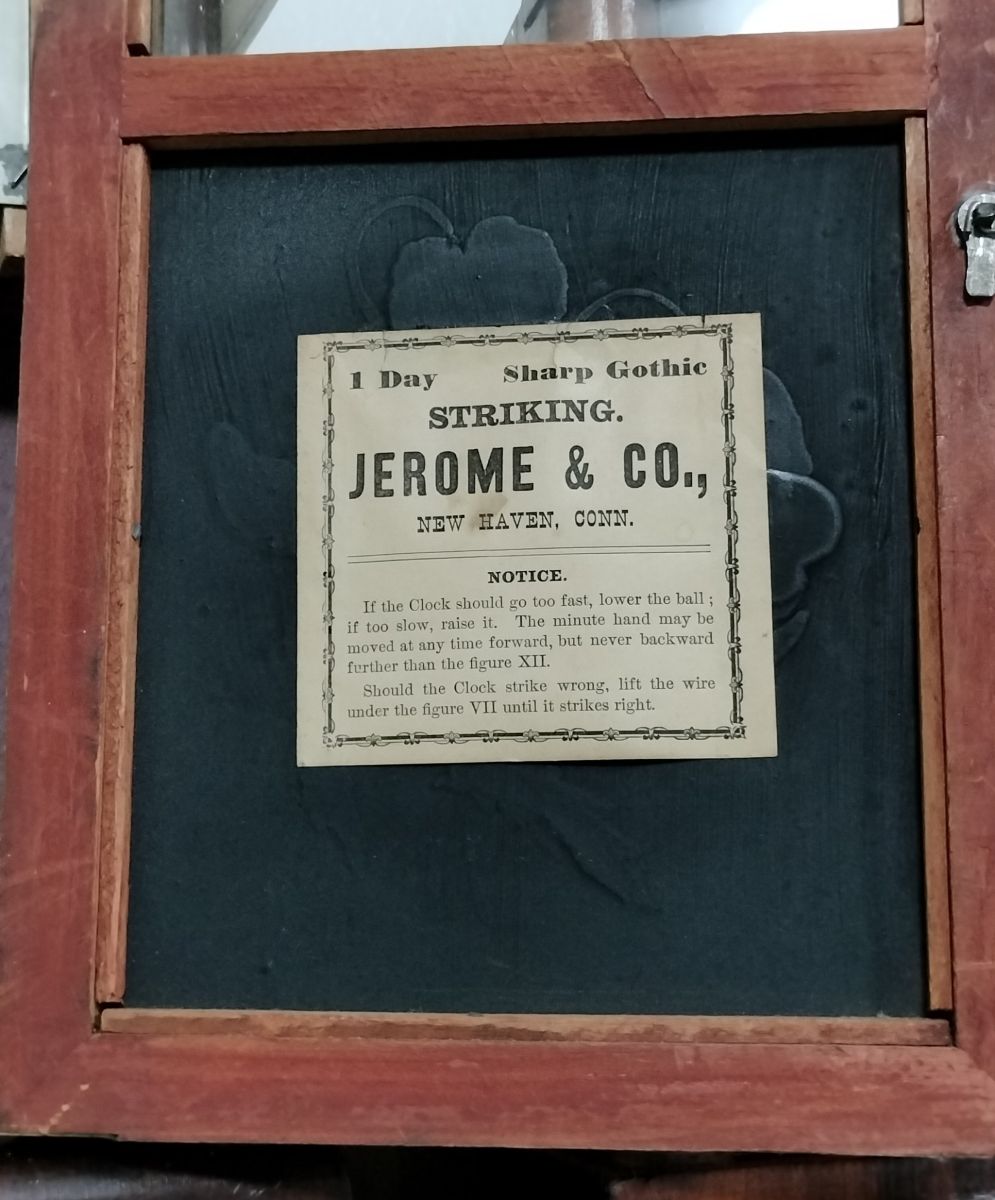 1 Day Sharp Gothic
STRIKING.
JEROME & CO.,
NEW HAVEN, CONN.
NOTICE.
If the Clock should go too fast, lower the ball;
if too slow, raise it. The minute hand may be
moved at any time forward, but never backward
further than the figure XII.
Should the Clock strike wrong, lift the wire
under the figure VII until it strikes right.